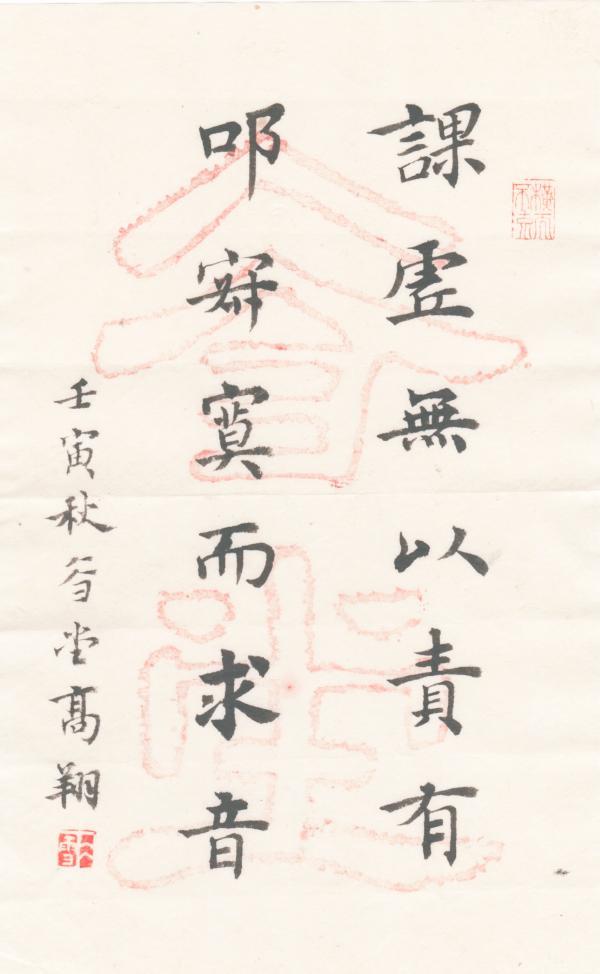 課虛無以責有
叩寂寞而求音
壬寅秋坐髙翔